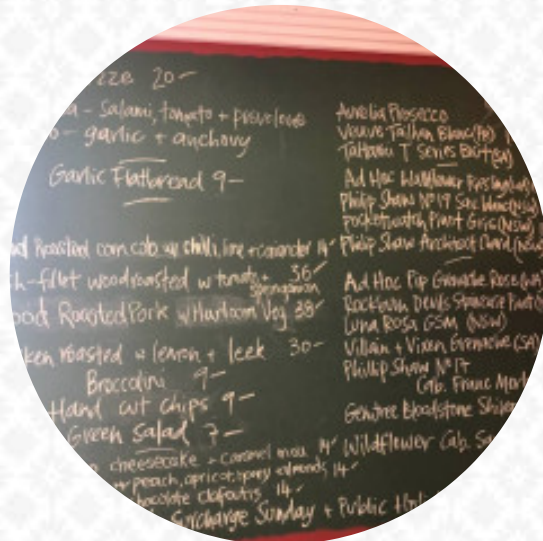 20-
Salami, tomato + provolone
garlic + anchovy
Garlic Flatbread 9-
Roasted corn cob w chilli, lime + coriander 14
fillet woodroasted w tomato + 36
Roasted Pork w Heirloom Veg 38
roasted w lemon + leek 30-
Broccolini 9-
Hand cut chips 9-
Green Salad 7-
cheesecake + caramel 14
peach, apricot, almonds 14
clafoutis 14
Surcharge Sunday + Public
Aurelia Prosecco
Veuve Blanc
T Series
Ad Hoc Wallflower
Philip Shaw Nº19 Sav blanc (NSW)
Pocketwatch Pinot Gris (NSW)
Philip Shaw Architect Chard (NSW)
Ad Hoc Pip Grenache Rose (WA)
Rockburn Devils Staircase Pinot
Luna Rosa GSM (NSW)
Villain + Vixen Grenache (SA)
Phillip Shaw Nº17
Cab. Franc
Gemtree Bloodstone
Wildflower Cab.